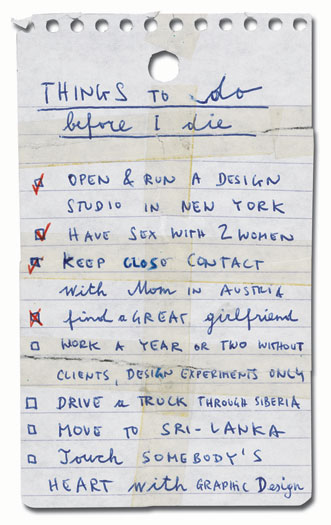 THINGS TO do
before I die
OPEN & RUN A DESIGN
STUDIO IN NEW YORK
HAVE SEX WITH 2 WOMEN
KEEP CLOSE CONTACT
with Mom IN AUSTRIA
find a GREAT girlfriend
WORK A YEAR OR TWO WITHOUT
CLIENTS, DESIGN EXPERIMENTS ONLY
DRIVE a TRUCK THROUGH SIBERIA
MOVE TO SRI-LANKA
Touch SOMEBODY'S
HEART with GRAPHIC Design